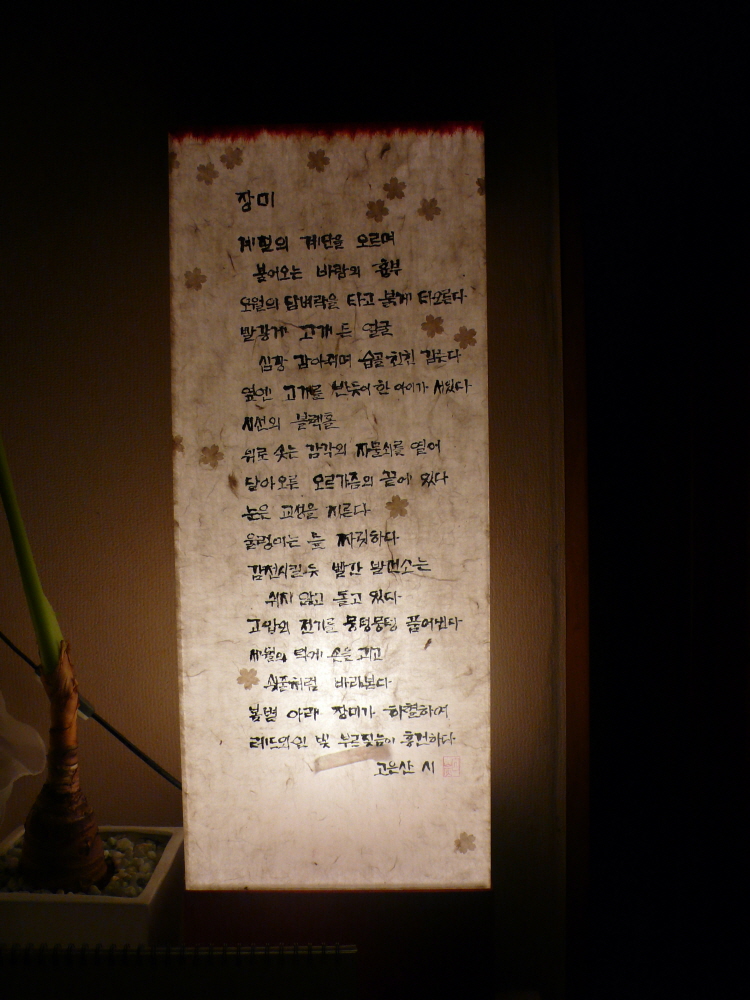 장미
계절의 계단을 오르며
불어오는 바람의 흉부
오월의 담벼락을 타고 붉게 타오른다
발갛게 고개 든 얼굴
심장 감아쥐며 습골 친친 감는다
옆엔 고개를 반듯이 한 아이가 서있다
시선의 블랙홀
위로 솟는 감각의 자물쇠를 열어
달아오른 오르가즘의 끝에 있다
눈은 고성을 지른다
울렁이는 늘 짜릿하다
감전시킬 듯 빨간 발전소는
쉬지 않고 돌고 있다
고압의 전기를 뭉텅뭉텅 뿜어낸다
세월의 턱에 손을 괴고
쉼표처럼 바라본다
봄볕 아래 장미가 하혈하여
레드와인 빛 부르짖음이 흥건하다
고은산 시